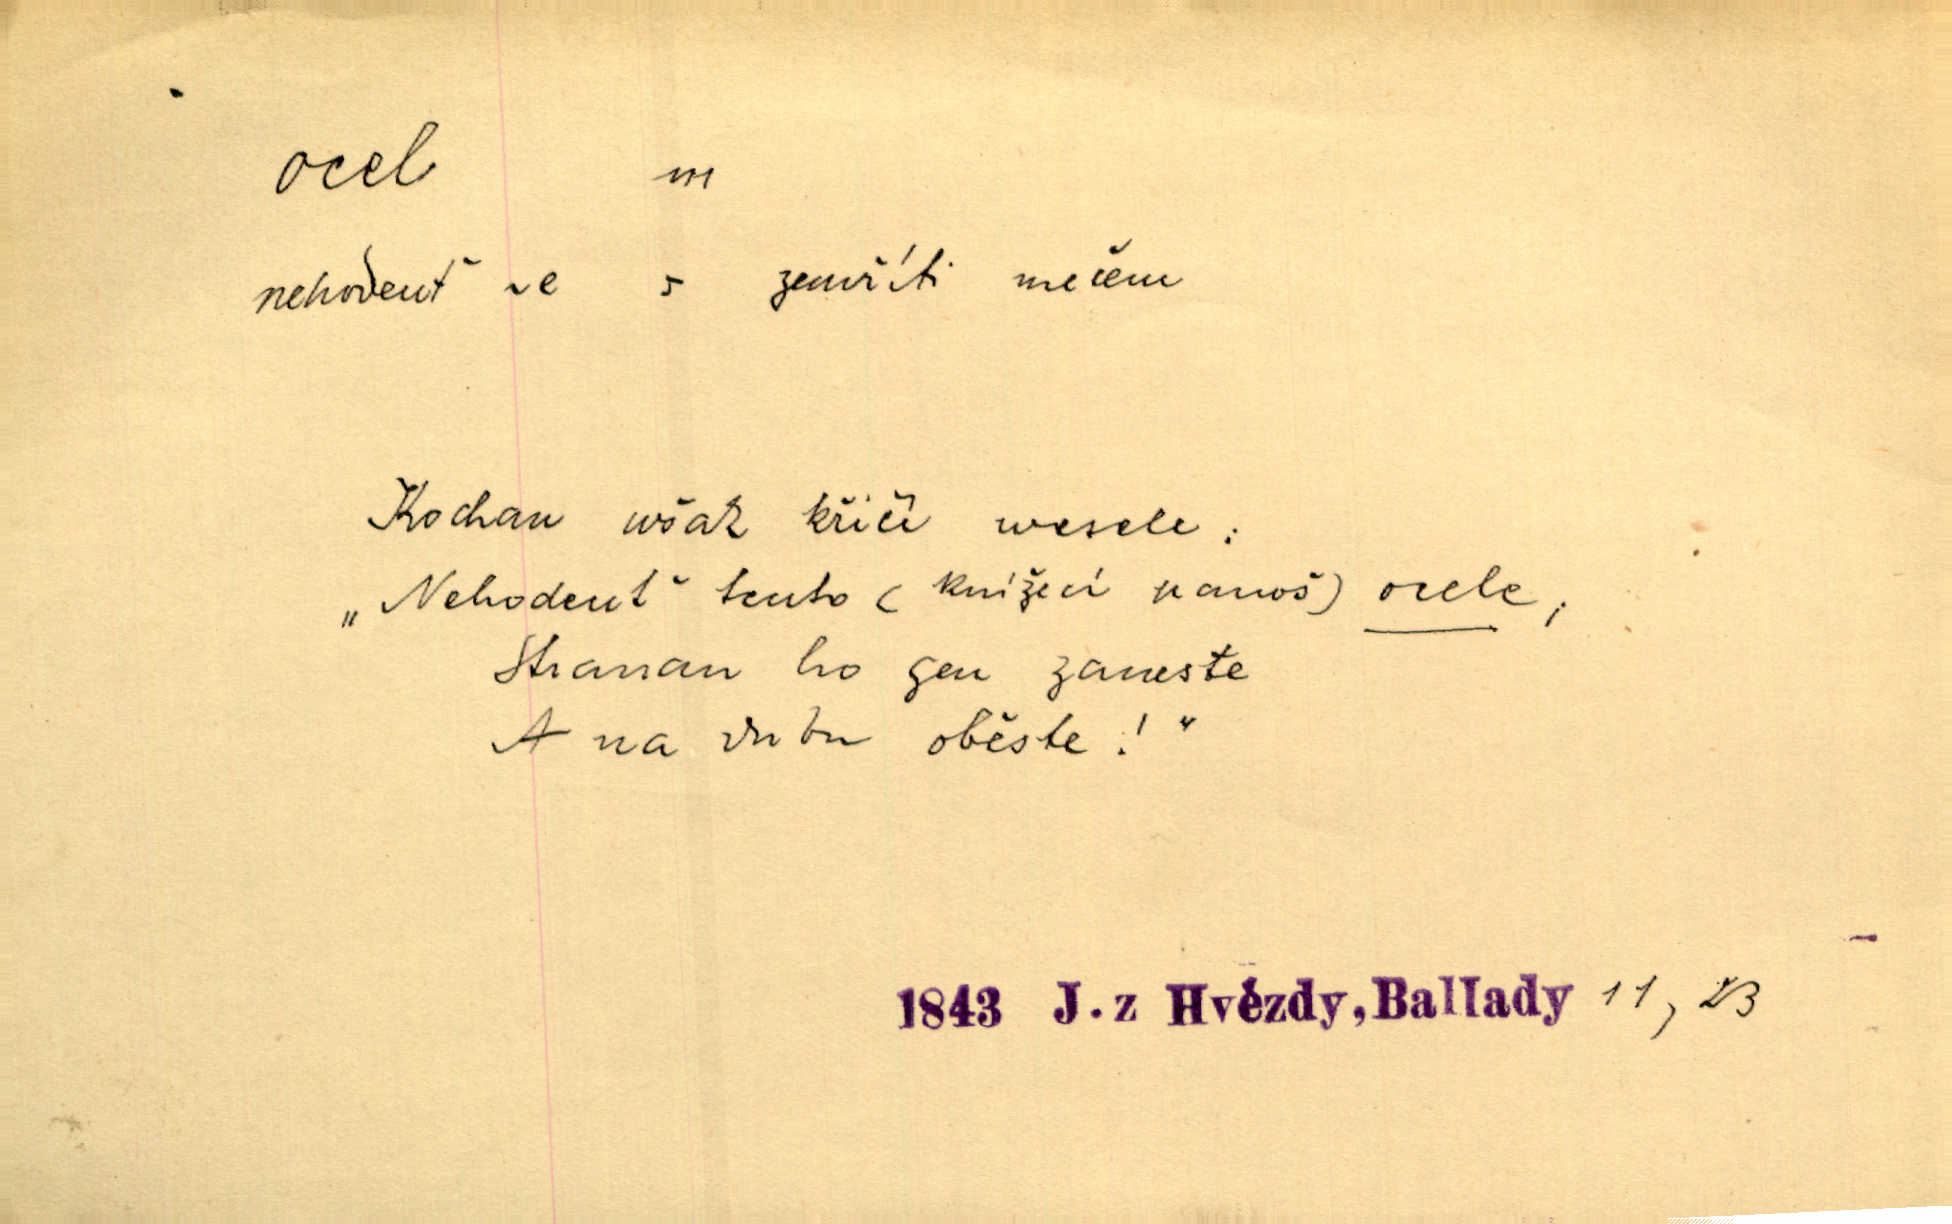 ocel m
nehodenť ~e s zemříti mečem
Kochan wšak křičí wesele:
„Nehodenť tento (knížecí panoš) ocele;
Stranan ho gen zaneste
A na dubu oběste!“
1843 J. z Hvězdy, Ballady 11, 23